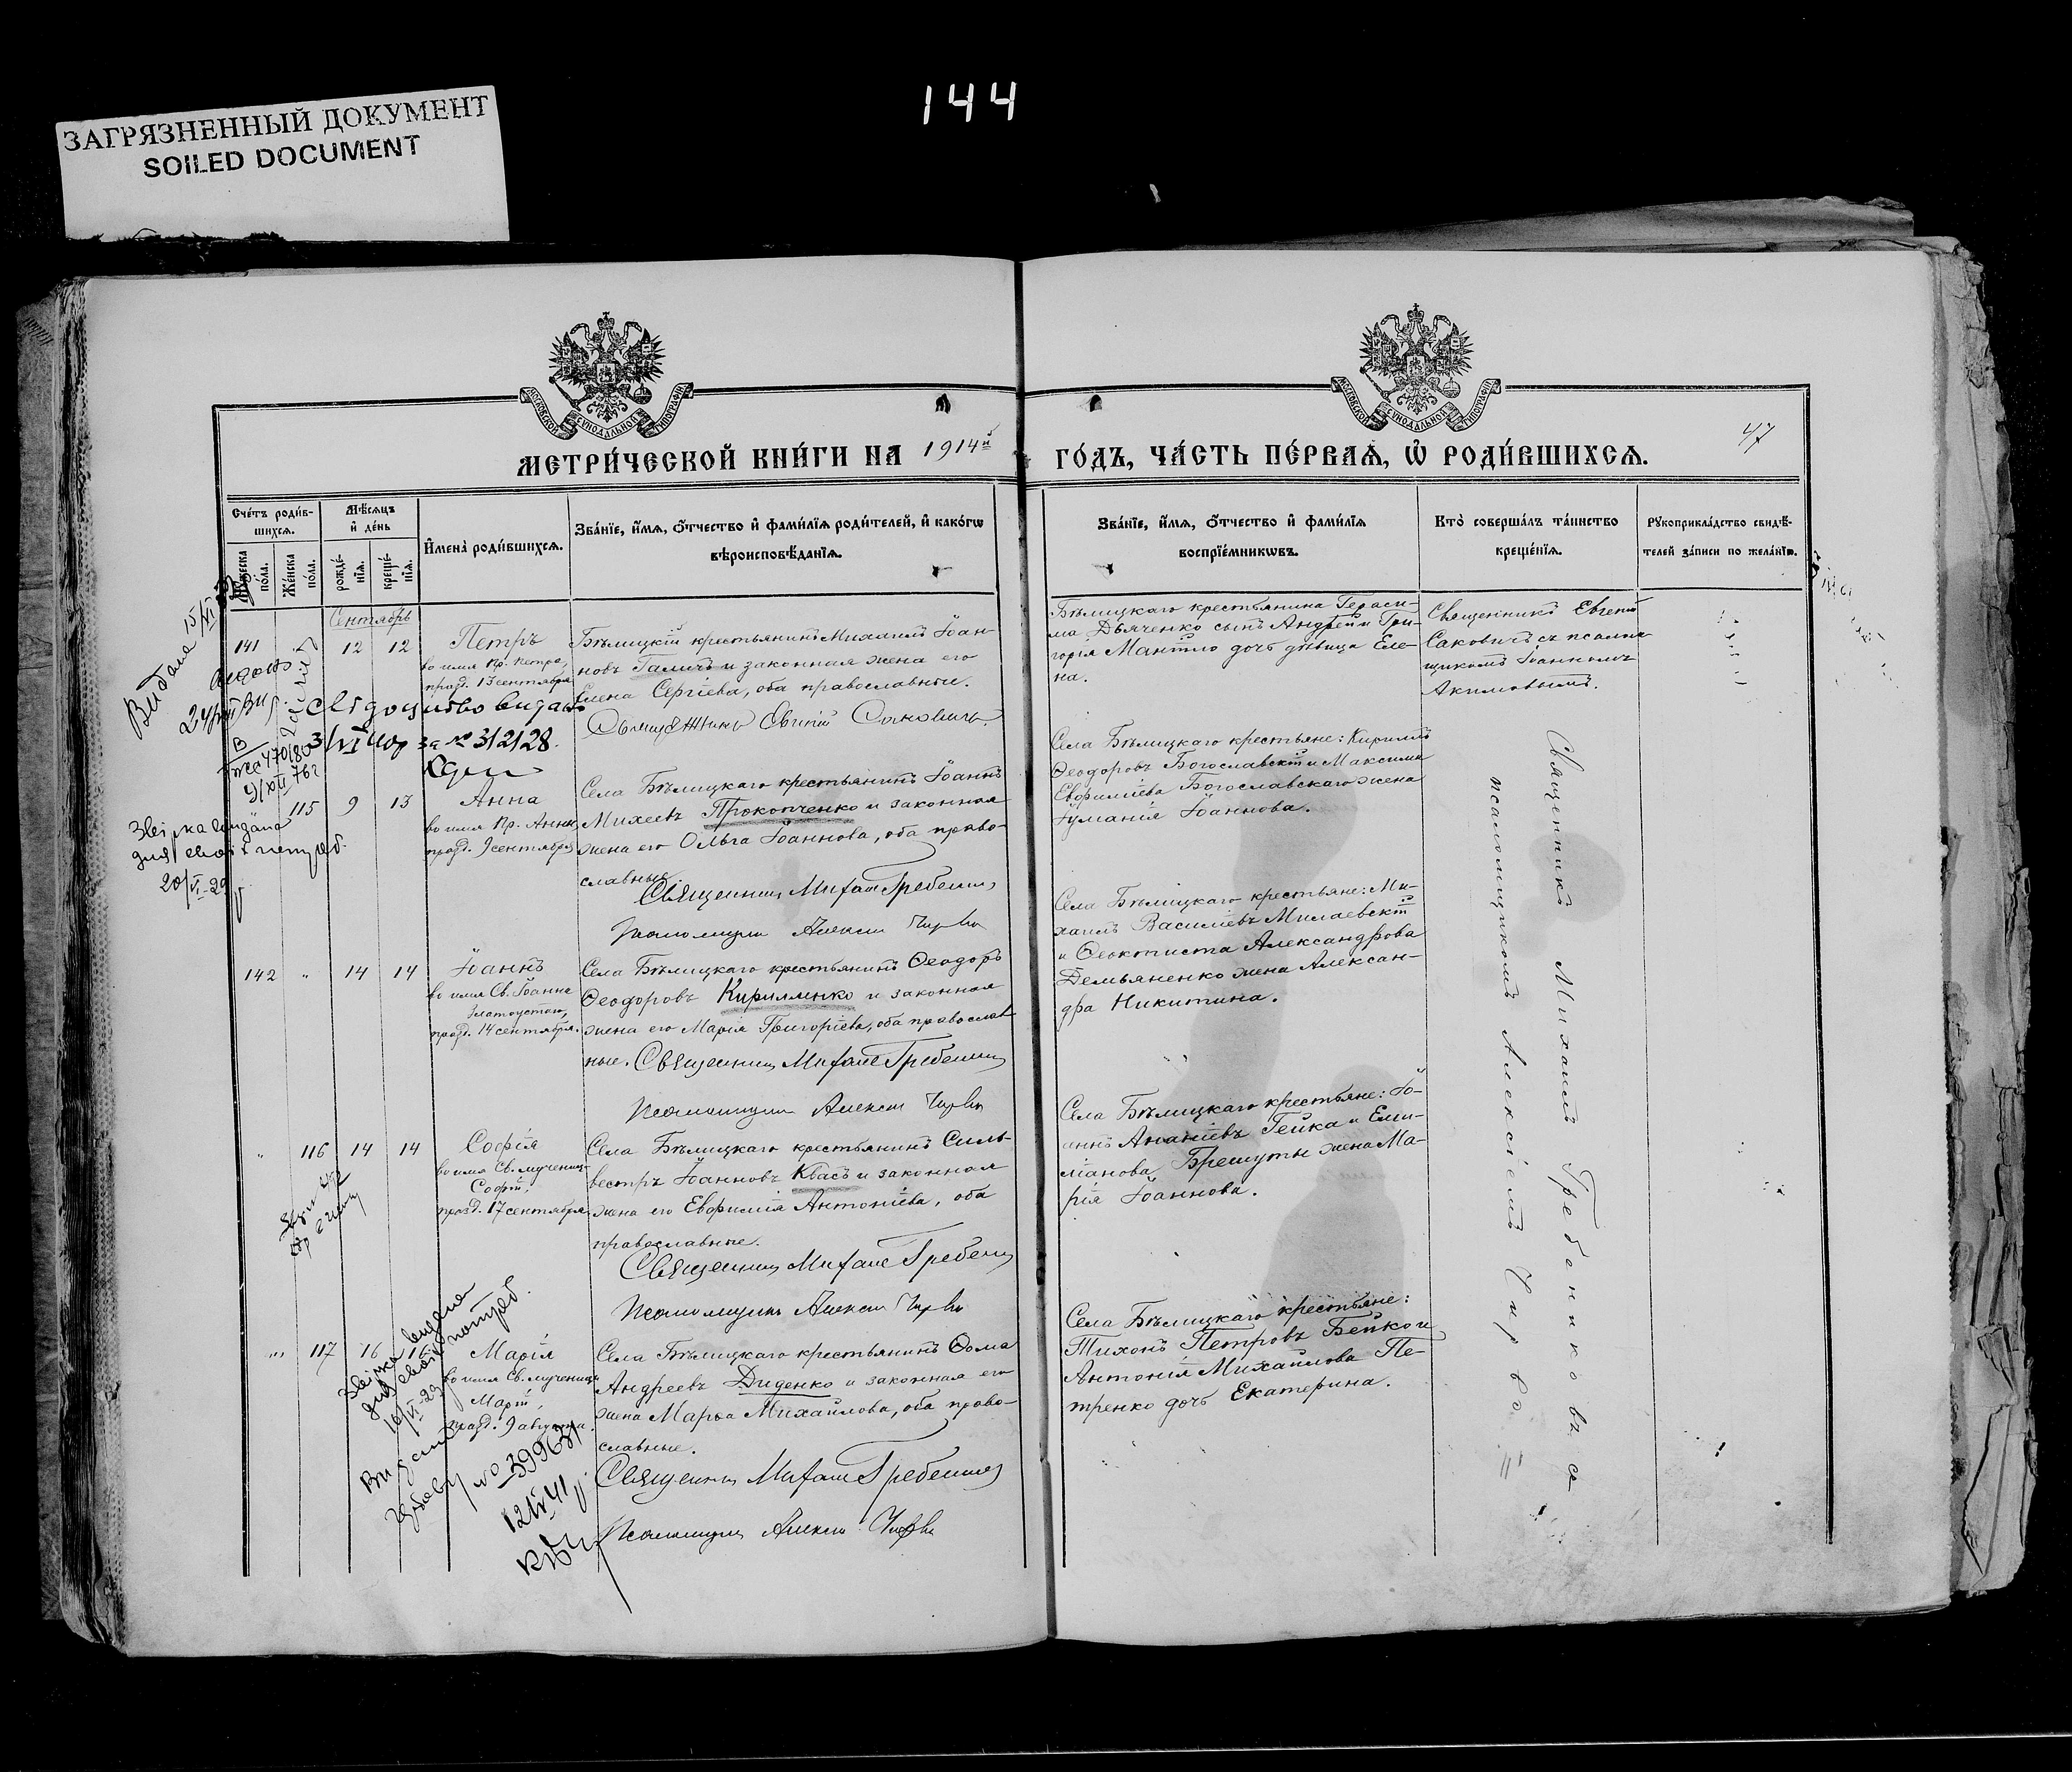 144
ЗАГРЯЗНЕННЫЙ ДОКУМЕНТ
SOILED DOCUMENT
МОСКОВСКОЙ СѴНОДАЛЬНОЙ ТИПОГРАФІИ
МОСКОВСКОЙ СѴНОДАЛЬНОЙ ТИПОГРАФІИ
МЕТРИ́ЧЕСКОЙ КНИ́ГИ НА 1914й ГО́ДЪ, ЧА́СТЬ ПЕ́РВАѦ, Ѡ҆ РОДИ́ВШИХСѦ.
47
Сче́тъ роди́в-
шихсѧ.
Мꙋжеска по́ла.
Же́нска по́ла.
Мѣ́сѧцъ и҆ де́нь
рожде́-
нїѧ.
креще́-
нїѧ.
И҆мена̀ роди́вшихсѧ.
Зва́нїе, и҆́мѧ, ѻ҆́тчество и҆ фами́лїѧ роди́телей, и҆ како́гѡ
вѣроисповѣ́данїѧ.
Зва́нїе, и҆́мѧ, ѻ҆́тчество и҆ фами́лїѧ
воспрїе́мникѡвъ.
Кто̀ соверша́лъ та́инство
креще́нїѧ.
Рꙋкоприкла́дство свидѣ́-
телей за́писи по жела́нїю.
Сентябрь
141 12 12
Петръ
во имя Пр. Петра,
празд. 13 сентября
Бѣлицкій крестьянинъ Михаилъ Іоан-
новъ Галичъ и законная жена его
Елена Сергіева, оба православные.
Священникъ Евгеній Саковичъ
Бѣлицкаго крестьянина Гераси-
ма Дьяченко сынъ Андрей и Гри-
горія Мантло дочь дѣвица Еле-
на.
Священникъ Евгеній
Саковичъ съ псалом-
щикомъ Іоанномъ
Акимовымъ.
Видана 15/VI
свідоцтво видано
3/VI 40р за № 312128.
115 9 13
Анна
во имя Пр. Анны,
празд. 9 сентября
Села Бѣлицкаго крестьянинъ Іоаннъ
Михеевъ Прокопченко и законная
жена его Ольга Іоаннова, оба право-
славные.
Священникъ Михаилъ Гребенник
Псаломщикъ Алексій Чирво
Села Бѣлицкаго крестьяне: Кириллъ
Ѳеодоровъ Богославскій и Максима
Евфиміева Богославскаго жена
Іуманія Іоаннова.
видана
для своїх потреб.
20/VI-29
142 " 14 14
Іоаннъ
во имя Св. Іоанна
Златоустаго,
празд. 14 сентября.
Села Бѣлицкаго крестьянинъ Ѳеодоръ
Ѳеодоровъ Кирилленко и законная
жена его Марія Григоріева, оба православ-
ные. Священникъ Михаилъ Гребенник
Псаломщикъ Алексій Чирво
Села Бѣлицкаго крестьяне: Ми-
хаилъ Василіевъ Милаевскій
и Ѳеоктиста Александрова
Демьяненко жена Алексан-
дра Никитина.
" 116 14 14
Софія
во имя Св. мучениц-
Софіи,
празд. 17 сентября
Села Бѣлицкаго крестьянинъ Силь-
вестръ Іоанновъ Квасъ и законная
жена его Евфимія Антоніева, оба
православные.
Священникъ Михаилъ Гребенник
Псаломщикъ Алексій Чирво
Села Бѣлицкаго крестьяне: Іо-
аннъ Ананіевъ Гейка и Еми-
ліанова Брешуты жена Ма-
рія Іоаннова.
" 117 16 16
Марія
во имя Св. мученицы
Маріи,
празд. 9 августа.
Села Бѣлицкаго крестьянинъ Ѳома
Андреевъ Диденко и законная его
жена Марѳа Михайлова, оба право-
славные.
Священникъ Михаилъ Гребенник
Псаломщикъ Алексій Чирво
Села Бѣлицкаго крестьяне:
Тихонъ Петровъ Бейко и
Антонія Михайлова Пе-
тренко дочь Екатерина.
видана
для своїх потреб.
16/VI-29
№ 399631
12/V 41
Священникъ Михаилъ Гребенниковъ съ
псаломщикомъ Алексіемъ Чирво.